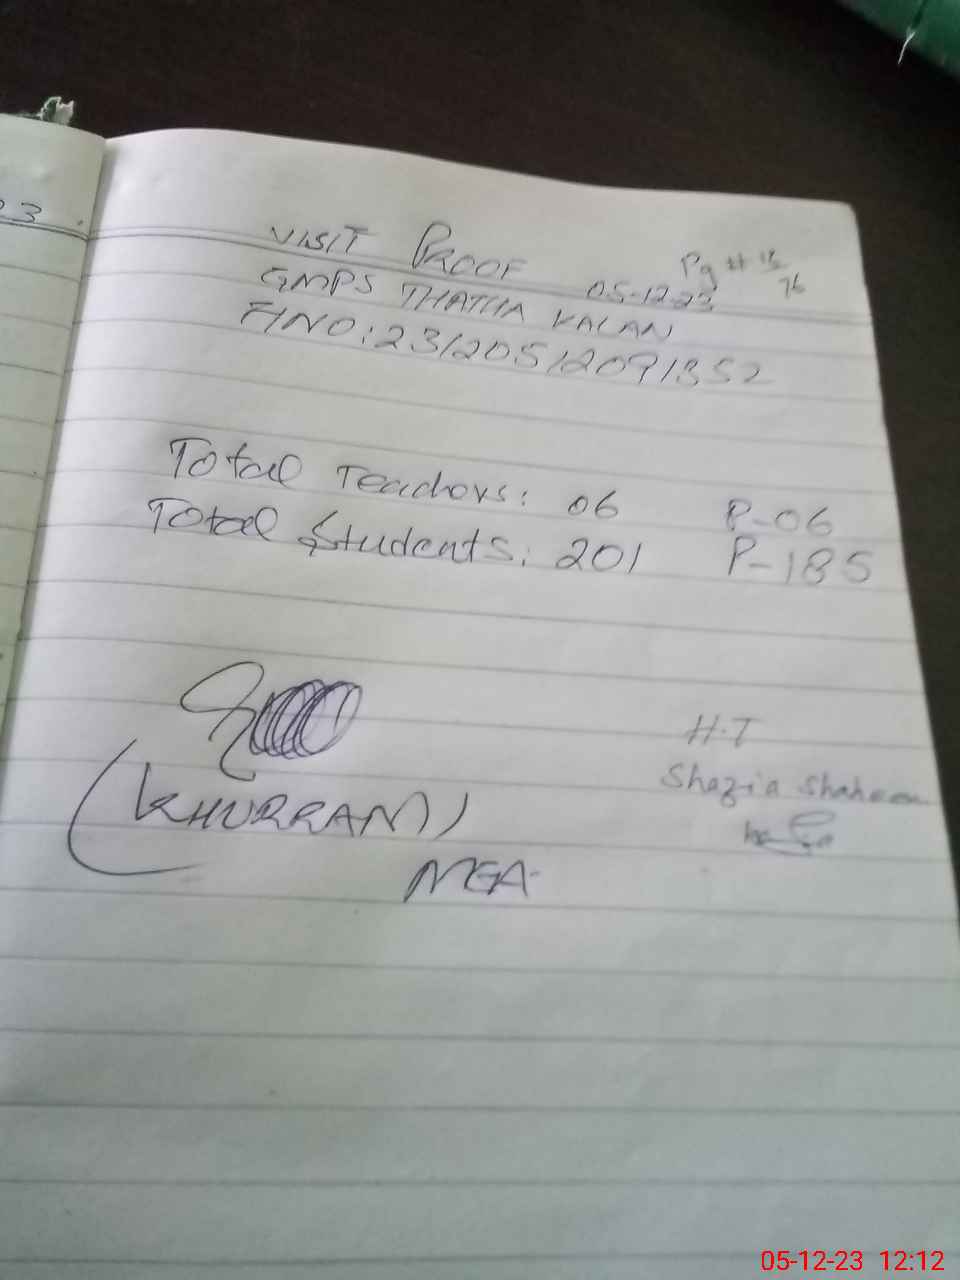 23.
VISIT PROOF
Pg # 18/76
05-12-23
GMPS THATHA KALAN
FINO: 23120512091352
Total Teachers: 06 P-06
Total Students: 201 P-185
H.T
Shazia Shaheen
(KHURRAM)
MEA
05-12-23 12:12